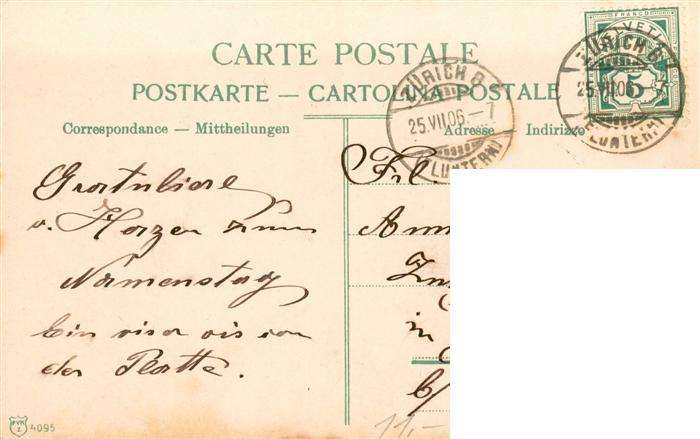 CARTE POSTALE
POSTKARTE — CARTOLINA POSTALE
Correspondance — Mittheilungen
Adresse Indirizzo
FRANCO
HELVETIA
5
ZÜRICH 8
25.VII.06.–7
(FLUNTERN)
ZÜRICH 8
25.VII.06.
(FLUNTERN)
Gratuliere
v. Herzen zum
Namenstag
Ein vis a vis von
der Platte.
Frl.
in
b/
11,-
4095